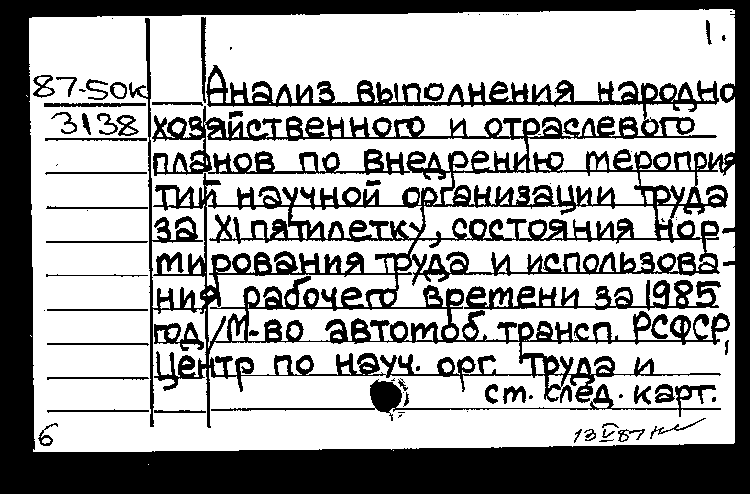 1.
87-50к Анализ выполнения народно
3138 хозяйственного и отраслевого
планов по внедрению мероприя
тий научной организации труда
за XI пятилетку, состояния нор-
мирования труда и использова-
ния рабочего времени за 1985
год /М-во автомоб. трансп. РСФСР,
Центр по науч. орг. труда и
ст. след. карт.
6 13 V 87